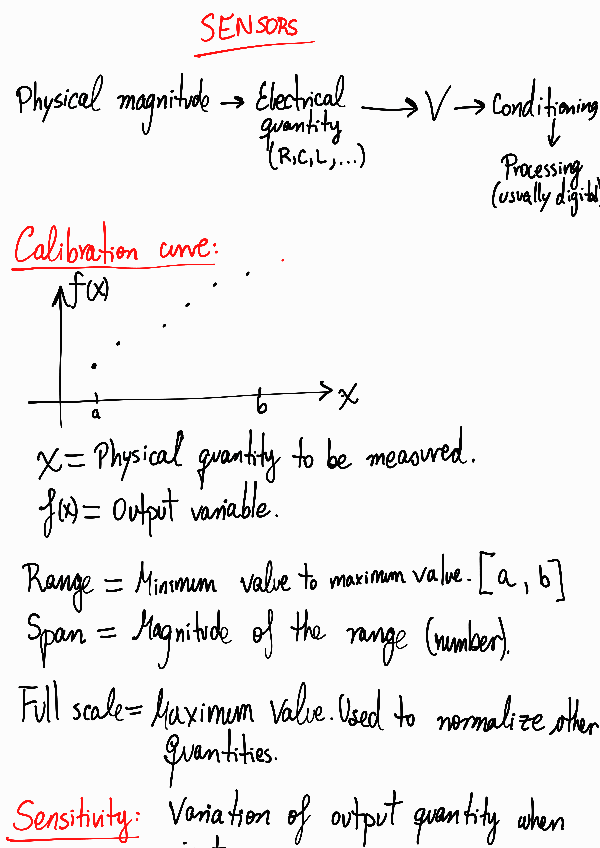 SENSORS
Physical magnitude → Electrical quantity (R,C,L,...) → V → Conditioning
↓
Processing
(usually digital)
Calibration curve:
f(x)
a b x
x = Physical quantity to be measured.
f(x) = Output variable.
Range = Minimum value to maximum value. [a, b]
Span = Magnitude of the range (number).
Full scale = Maximum Value. Used to normalize other
quantities.
Sensitivity: Variation of output quantity when